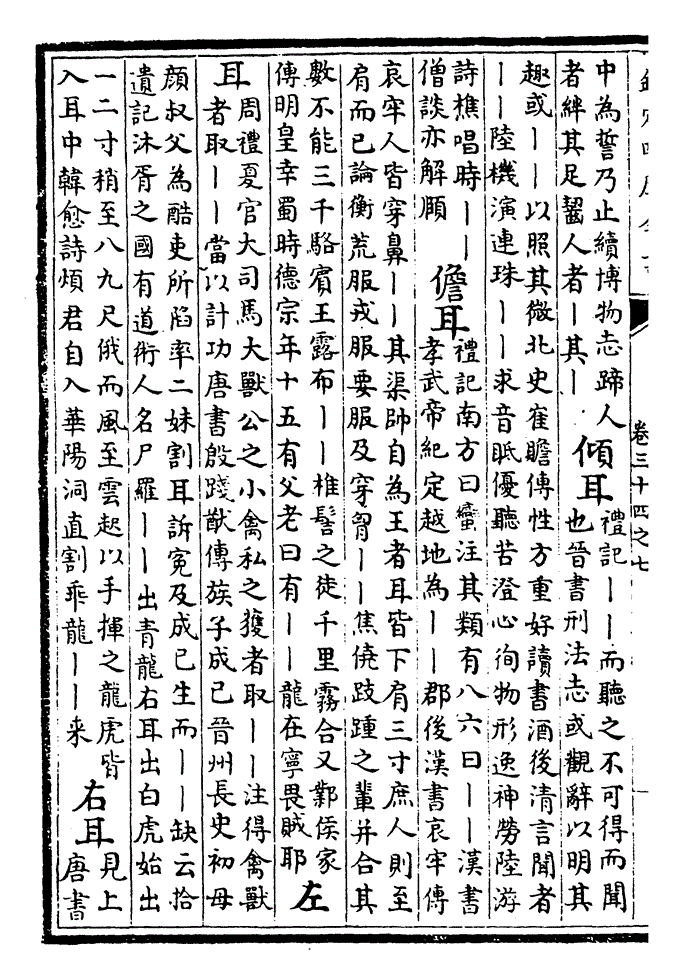 卷三十四之七
中為誓乃止續博物志蹄人
者絆其足齧人者丨其丨
傾耳
禮記丨丨而聽之不可得而聞
也晉書刑法志或觀辭以明其
趣或丨丨以照其微北史崔瞻傳性方重好讀書酒後清言聞者
丨丨陸機演連珠丨丨求音眡優聽苦澄心徇物形逸神勞陸游
詩樵唱時丨丨
僧談亦解頤
儋耳
禮記南方曰蠻注其類有八六曰丨丨漢書
孝武帝紀定越地為丨丨郡後漢書哀牢傳
哀牢人皆穿鼻丨丨其渠帥自為王者耳皆下肩三寸庶人則至
肩而已論衡荒服戎服要服及穿胷丨丨焦僥跂踵之輩并合其
數不能三千駱賓王露布丨丨椎髻之徒千里霧合又鄴侯家
傳明皇幸蜀時德宗年十五有父老曰有丨丨龍在寧畏賊耶
左
耳
周禮夏官大司馬大獸公之小禽私之獲者取丨丨注得禽獸
者取丨丨當以計功唐書殷踐猷傳族子成已晉州長史初母
顔叔父為酷吏所陷率二妹割耳訴冤及成已生而丨丨缺云拾
遺記沐胥之國有道術人名尸羅丨丨出青龍右耳出白虎始出
一二寸稍至八九尺俄而風至雲起以手揮之龍虎皆
入耳中韓愈詩煩君自入華陽洞直割乖龍丨丨来
右耳
見上
唐書